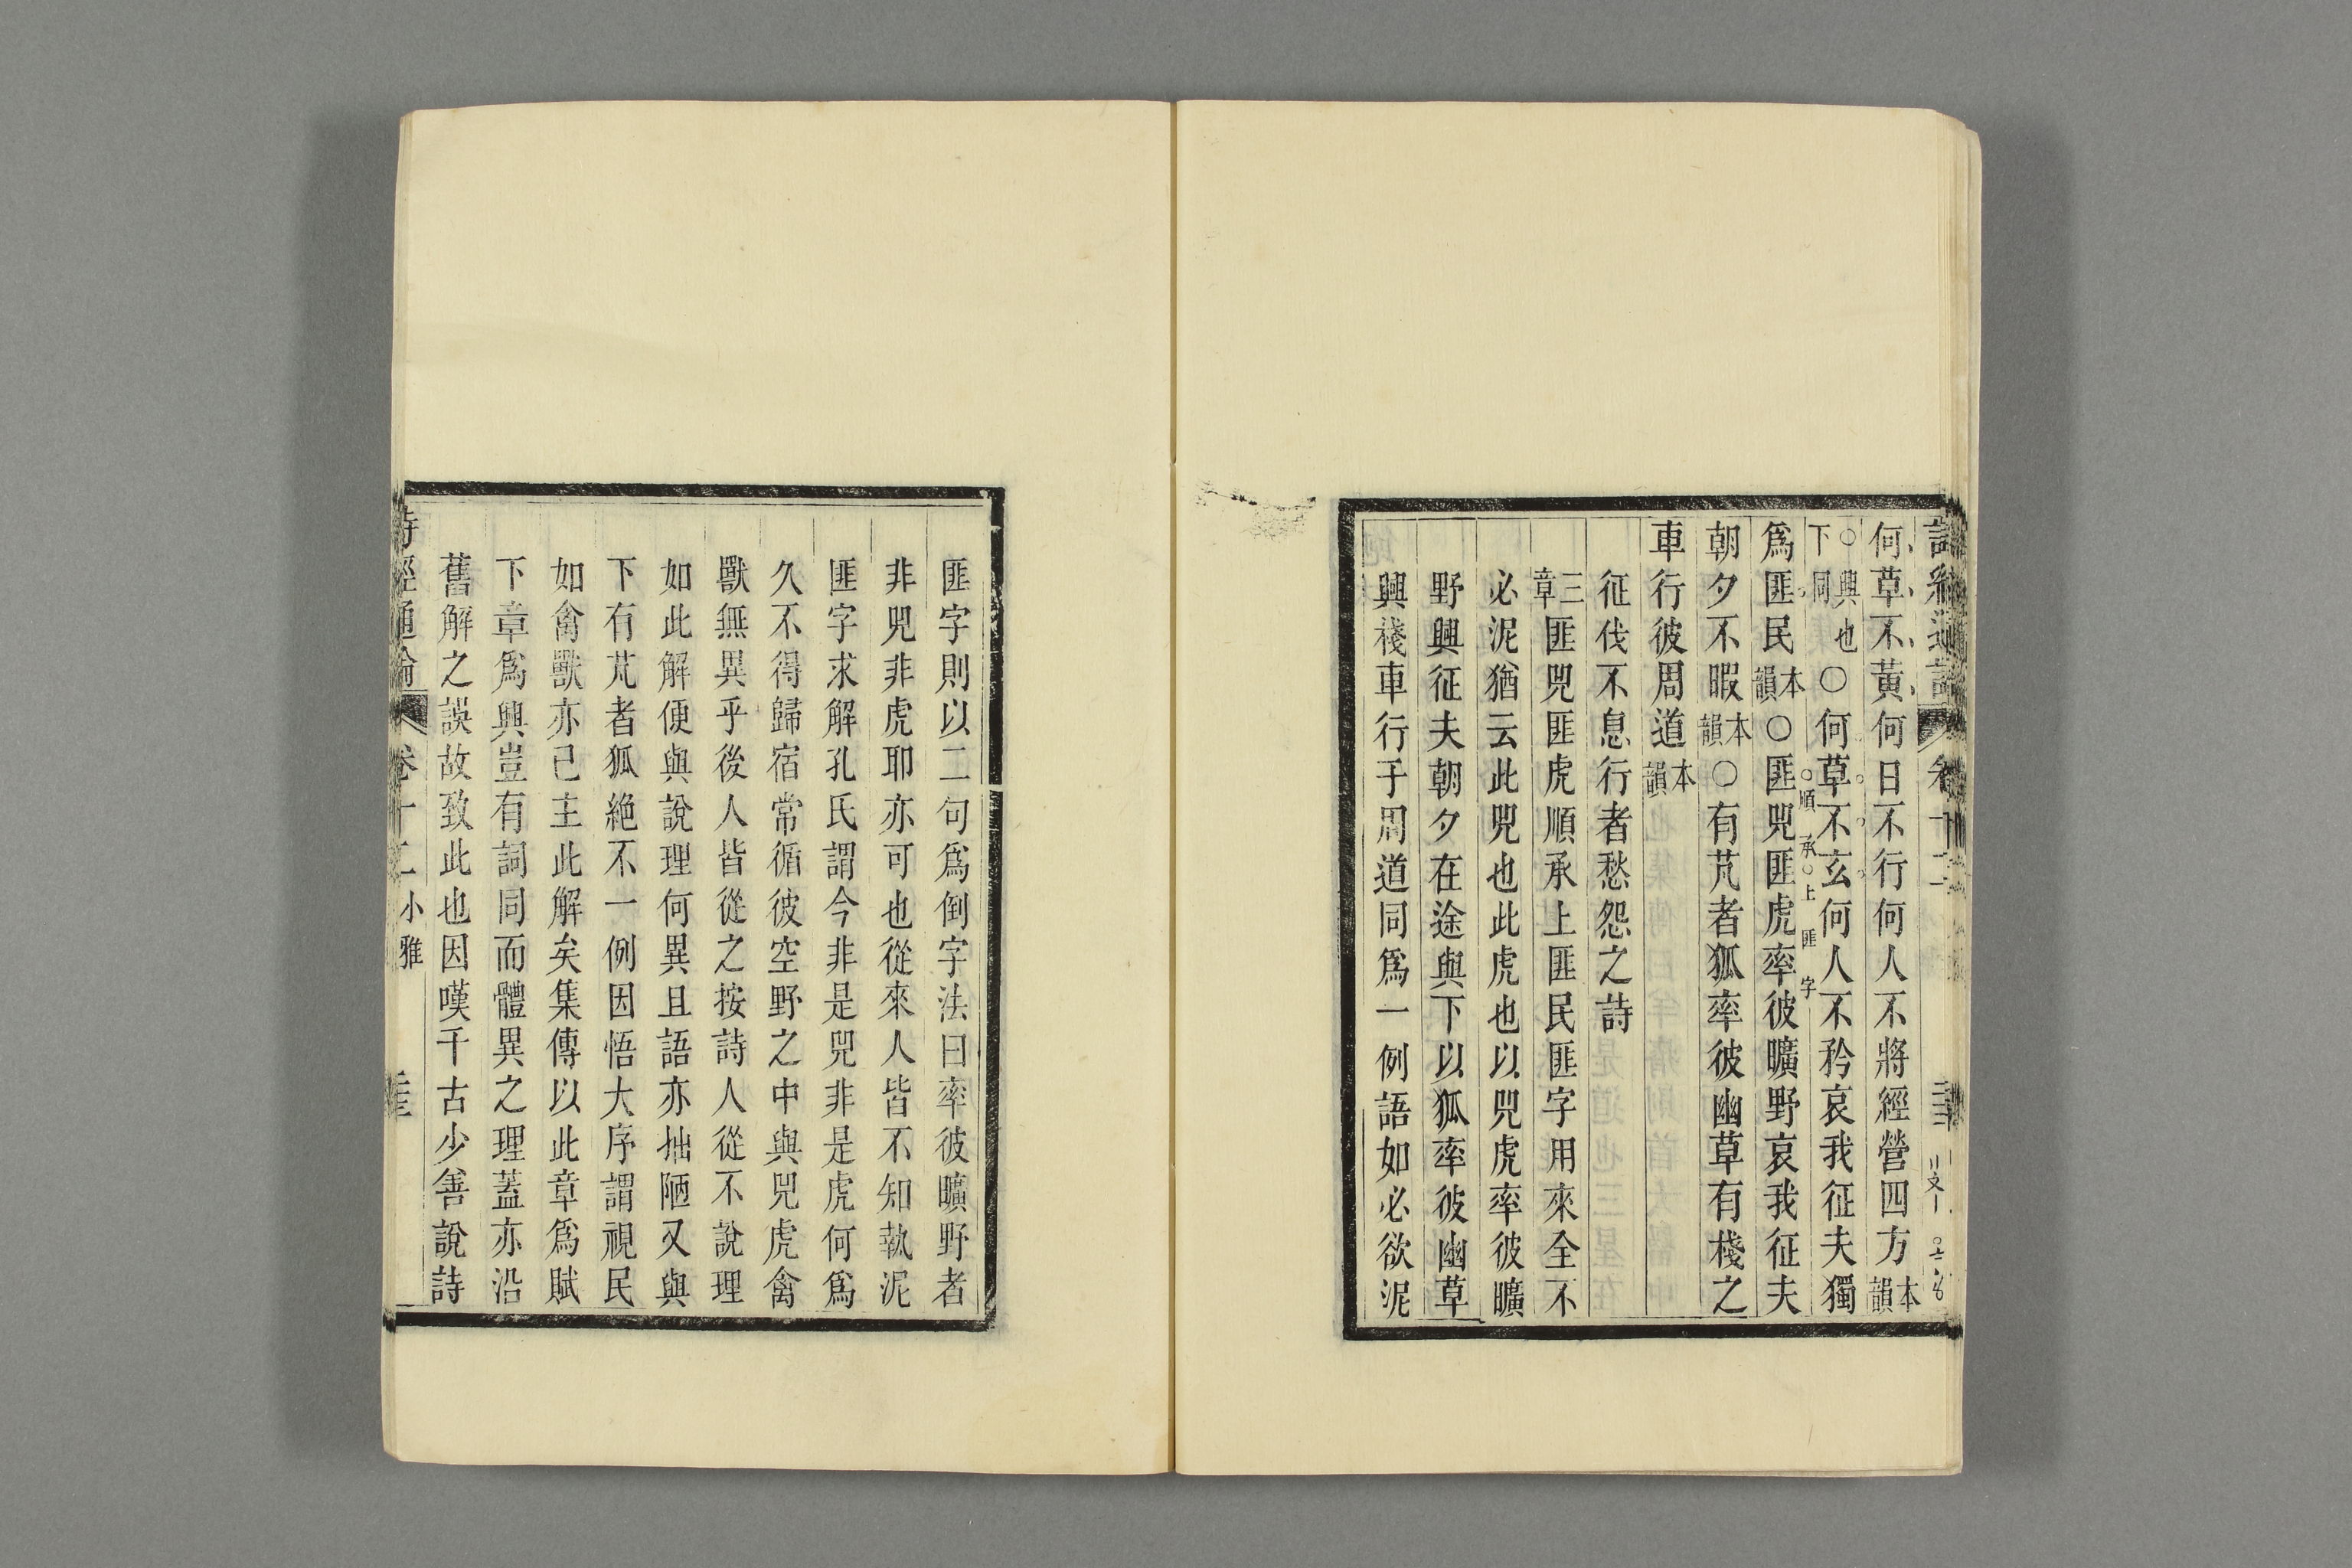 何草不黃何日不行何人不將經營四方本韻
○興也下同○何草不玄何人不矜哀我征夫獨
爲匪民本韻○匪兕匪虎率彼曠野哀我征夫
○順承○上匪字
朝夕不暇本韻○有芃者狐率彼幽草有棧之
車行彼周道本韻
征伐不息行者愁怨之詩
三章匪兕匪虎順承上匪民匪字用來全不
必泥猶云此兕也此虎也以兕虎率彼曠
野興征夫朝夕在途與下以狐率彼幽草
興棧車行于周道同爲一例語如必欲泥
匪字則以二句爲倒字法曰率彼曠野者
非兕非虎耶亦可也從來人皆不知執泥
匪字求解孔氏謂今非是兕非是虎何爲
久不得歸宿常循彼空野之中與兕虎禽
獸無異乎後人皆從之按詩人從不說理
如此解便與說理何異且語亦拙陋又與
下有芃者狐絶不一例因悟大序謂視民
如禽獸亦已主此解矣集傳以此章爲賦
下章爲興豈有詞同而體異之理蓋亦沿
舊解之誤故致此也因嘆千古少善說詩
詩經通論 卷十二小雅